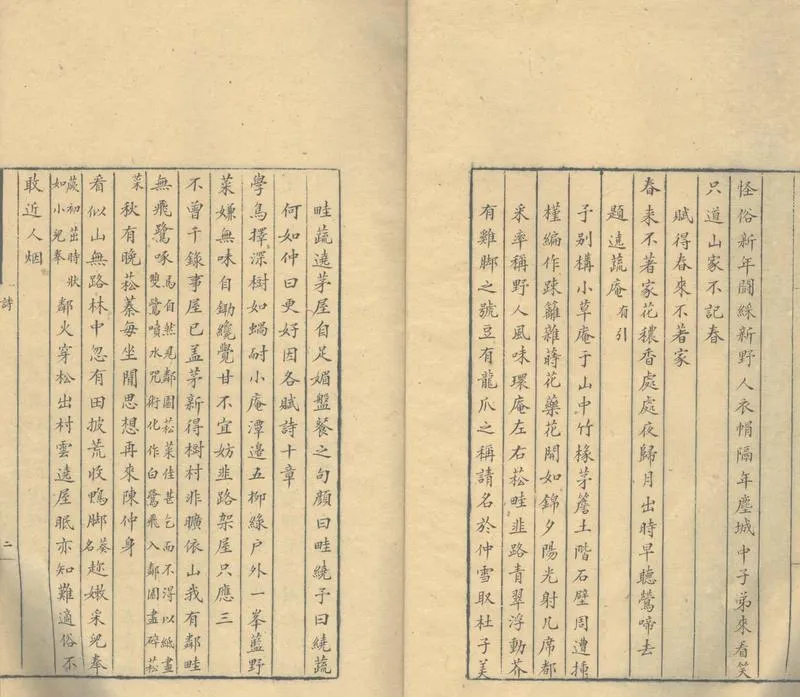 怪俗新年鬪綵新野人衣帽隔年塵城中子弟來看笑
只道山家不記春
賦得春來不著家
春来不著家花穠香處處夜歸月出時早聽鶯啼去
題遶蔬庵有引
予別構小草庵于山中竹椽茅簷土階石壁周遭揷
槿編作疎籬雜蒔花藥花開如錦夕陽光射几席都
采率稱野人風味環庵左右菘畦韭路青翠浮動芥
有雞脚之號豆有龍爪之稱請名於仲雪取杜子美
畦蔬遶茅屋自足媚盤餐之句顔曰畦繞予曰繞蔬
何如仲曰更好因各賦詩十章
學鳥擇深樹如蝸耐小庵潭邉五柳綠户外一峯藍野
菜嫌無味自鋤纔覺甘不宜妨韭路架屋只應三
不曾千錄事屋已盖茅新得樹村非曠依山我有鄰畦
無飛鷺啄馬自然見鄰園菘菜佳甚乞而不得以紙畫雙鷺噴水咒術化作白鷺飛入鄰園盡碎菘
菜秋有晚菘蓁每坐閒思想再來陳仲身
看似山無路林中忽有田披荒收鴨脚葵名趂嫩采兒拳
蕨初茁時狀如小兒拳鄰火穿松出村雲遶屋眠亦知難適俗不
敢近人烟
詩
二